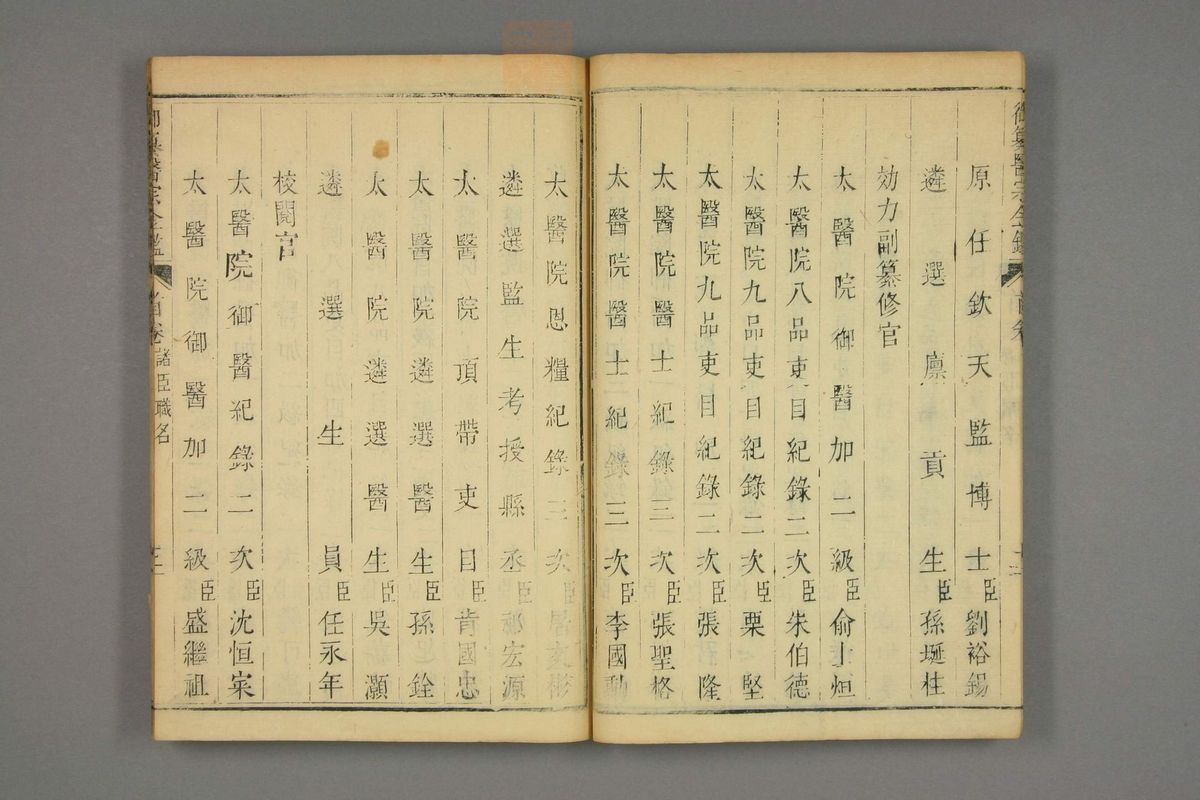 御纂醫宗金鑑
首卷
原任欽天監博士臣劉裕錫
遴選廪貢生臣孫埏柱
效力副纂修官
太醫院御醫加二級臣俞士烜
太醫院八品吏目紀錄二次臣朱伯德
太醫院九品吏目紀錄二次臣栗堅
太醫院九品吏目紀錄二次臣張隆
太醫院醫士紀錄三次臣張聖格
太醫院醫士紀錄三次臣李國勷
太醫院恩糧紀錄三次臣屠文彬
遴選監生考授縣丞臣祁宏源
太醫院頂帶吏目臣肯國忠
太醫院遴選醫生臣孫足銓
太醫院遴選醫生臣吳灝
遴選生員臣任永年
校閱官
太醫院御醫紀錄二次臣沈恒寀
太醫院御醫加二級臣盛繼祖
御纂醫宗金鑑
首卷
諸臣職名